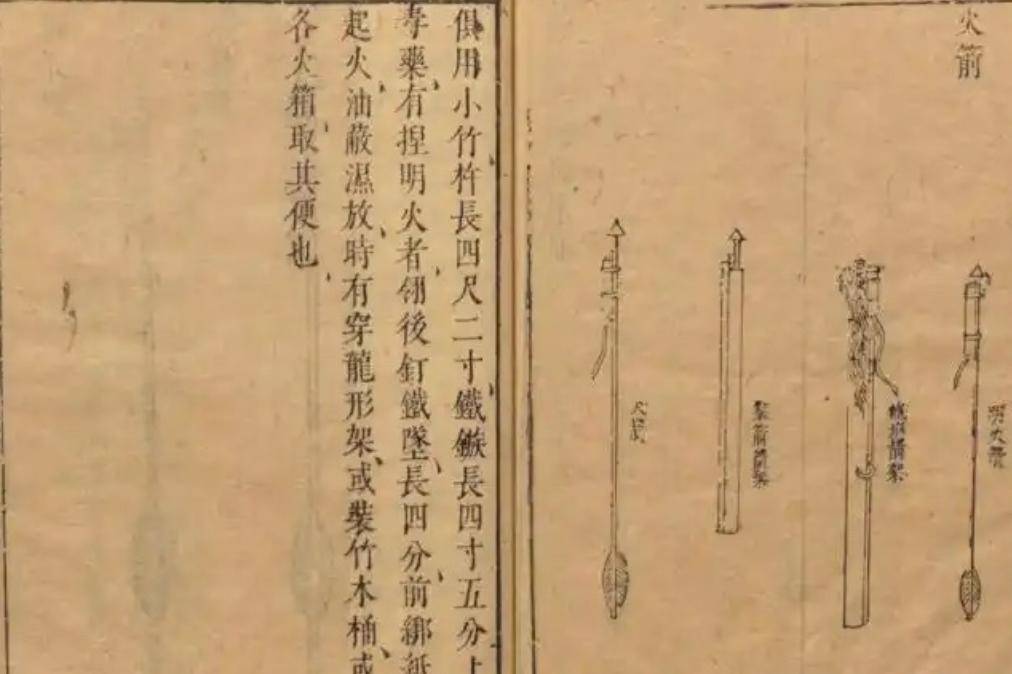 火箭
明火箭
箭架
箭桶架
火箭
俱用小竹杵長四尺二寸鐵鏃長四寸五分上
毒藥有捏明火者翎後釘鐵墜長四分前綁紙
起火油蔽濕放時有穿龍形架或裝竹木桶或
各火箱取其便也